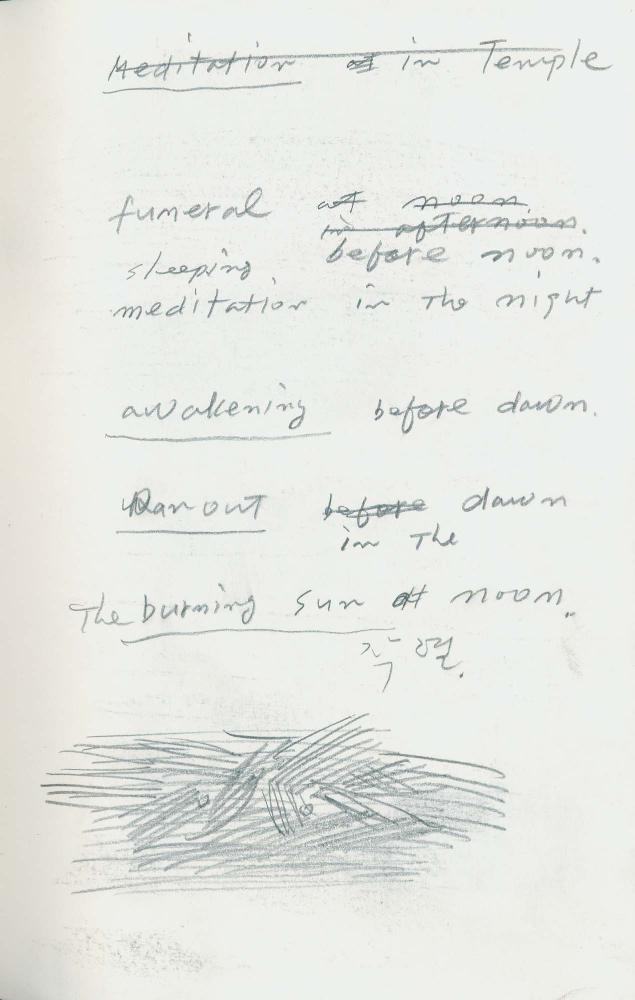 Meditation at in Temple
funeral at noon
in afternoon.
sleeping before noon.
meditation in The night
awakening before dawn.
Ran out before dawn
in The
The burning sun at noon.
작열.